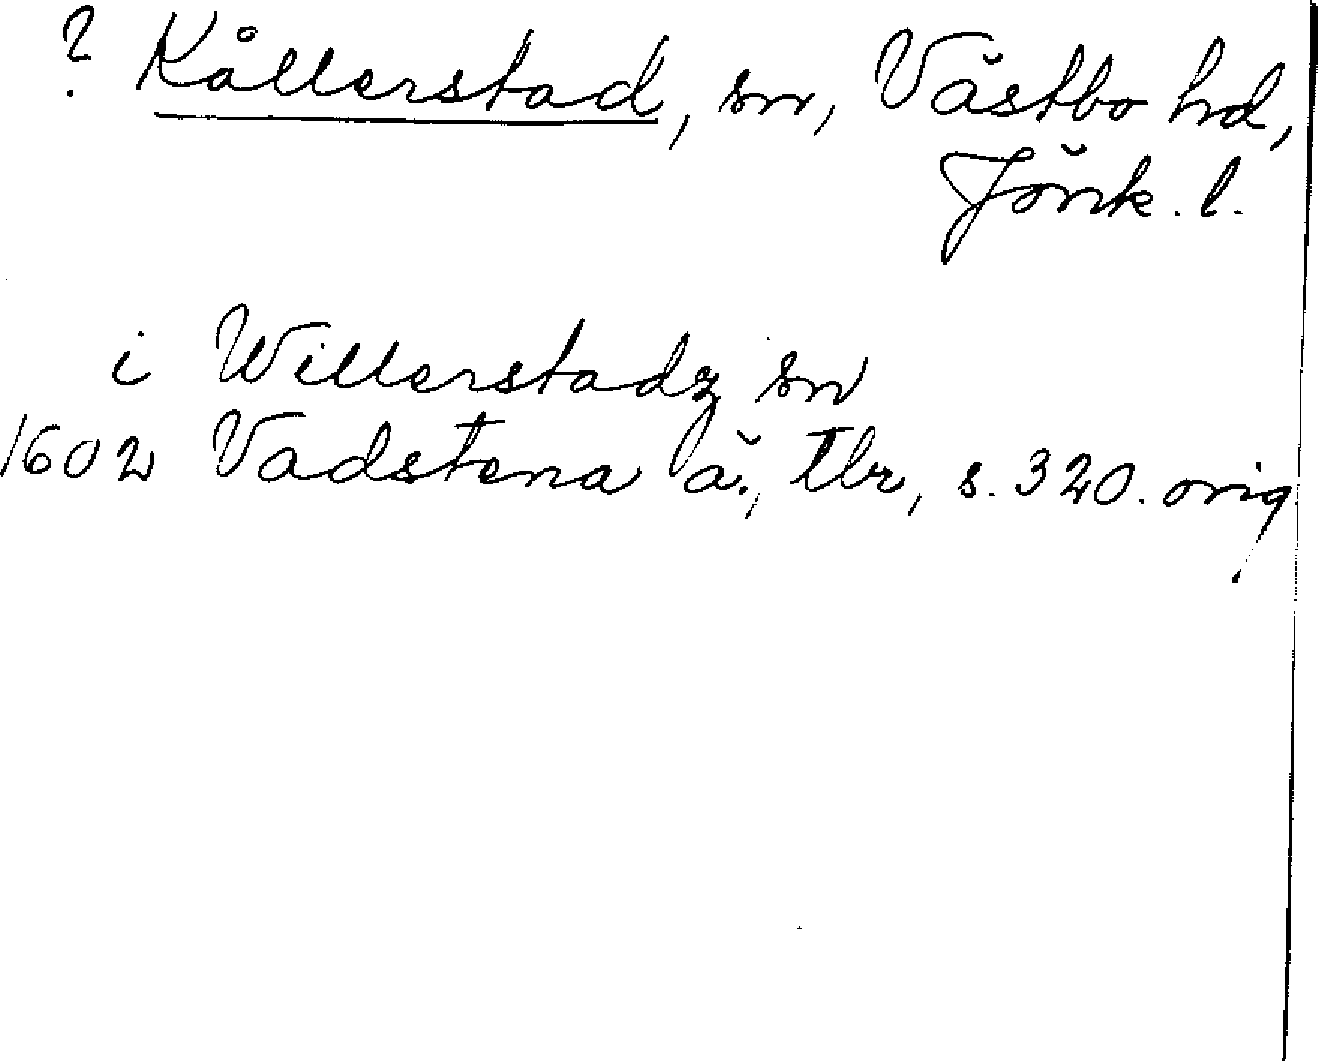 ? Kållerstad, sn, Västbo hd,
Jönk. l.
i Willerstadz sn
1602 Vadstena ä., Tbr, s. 320. orig